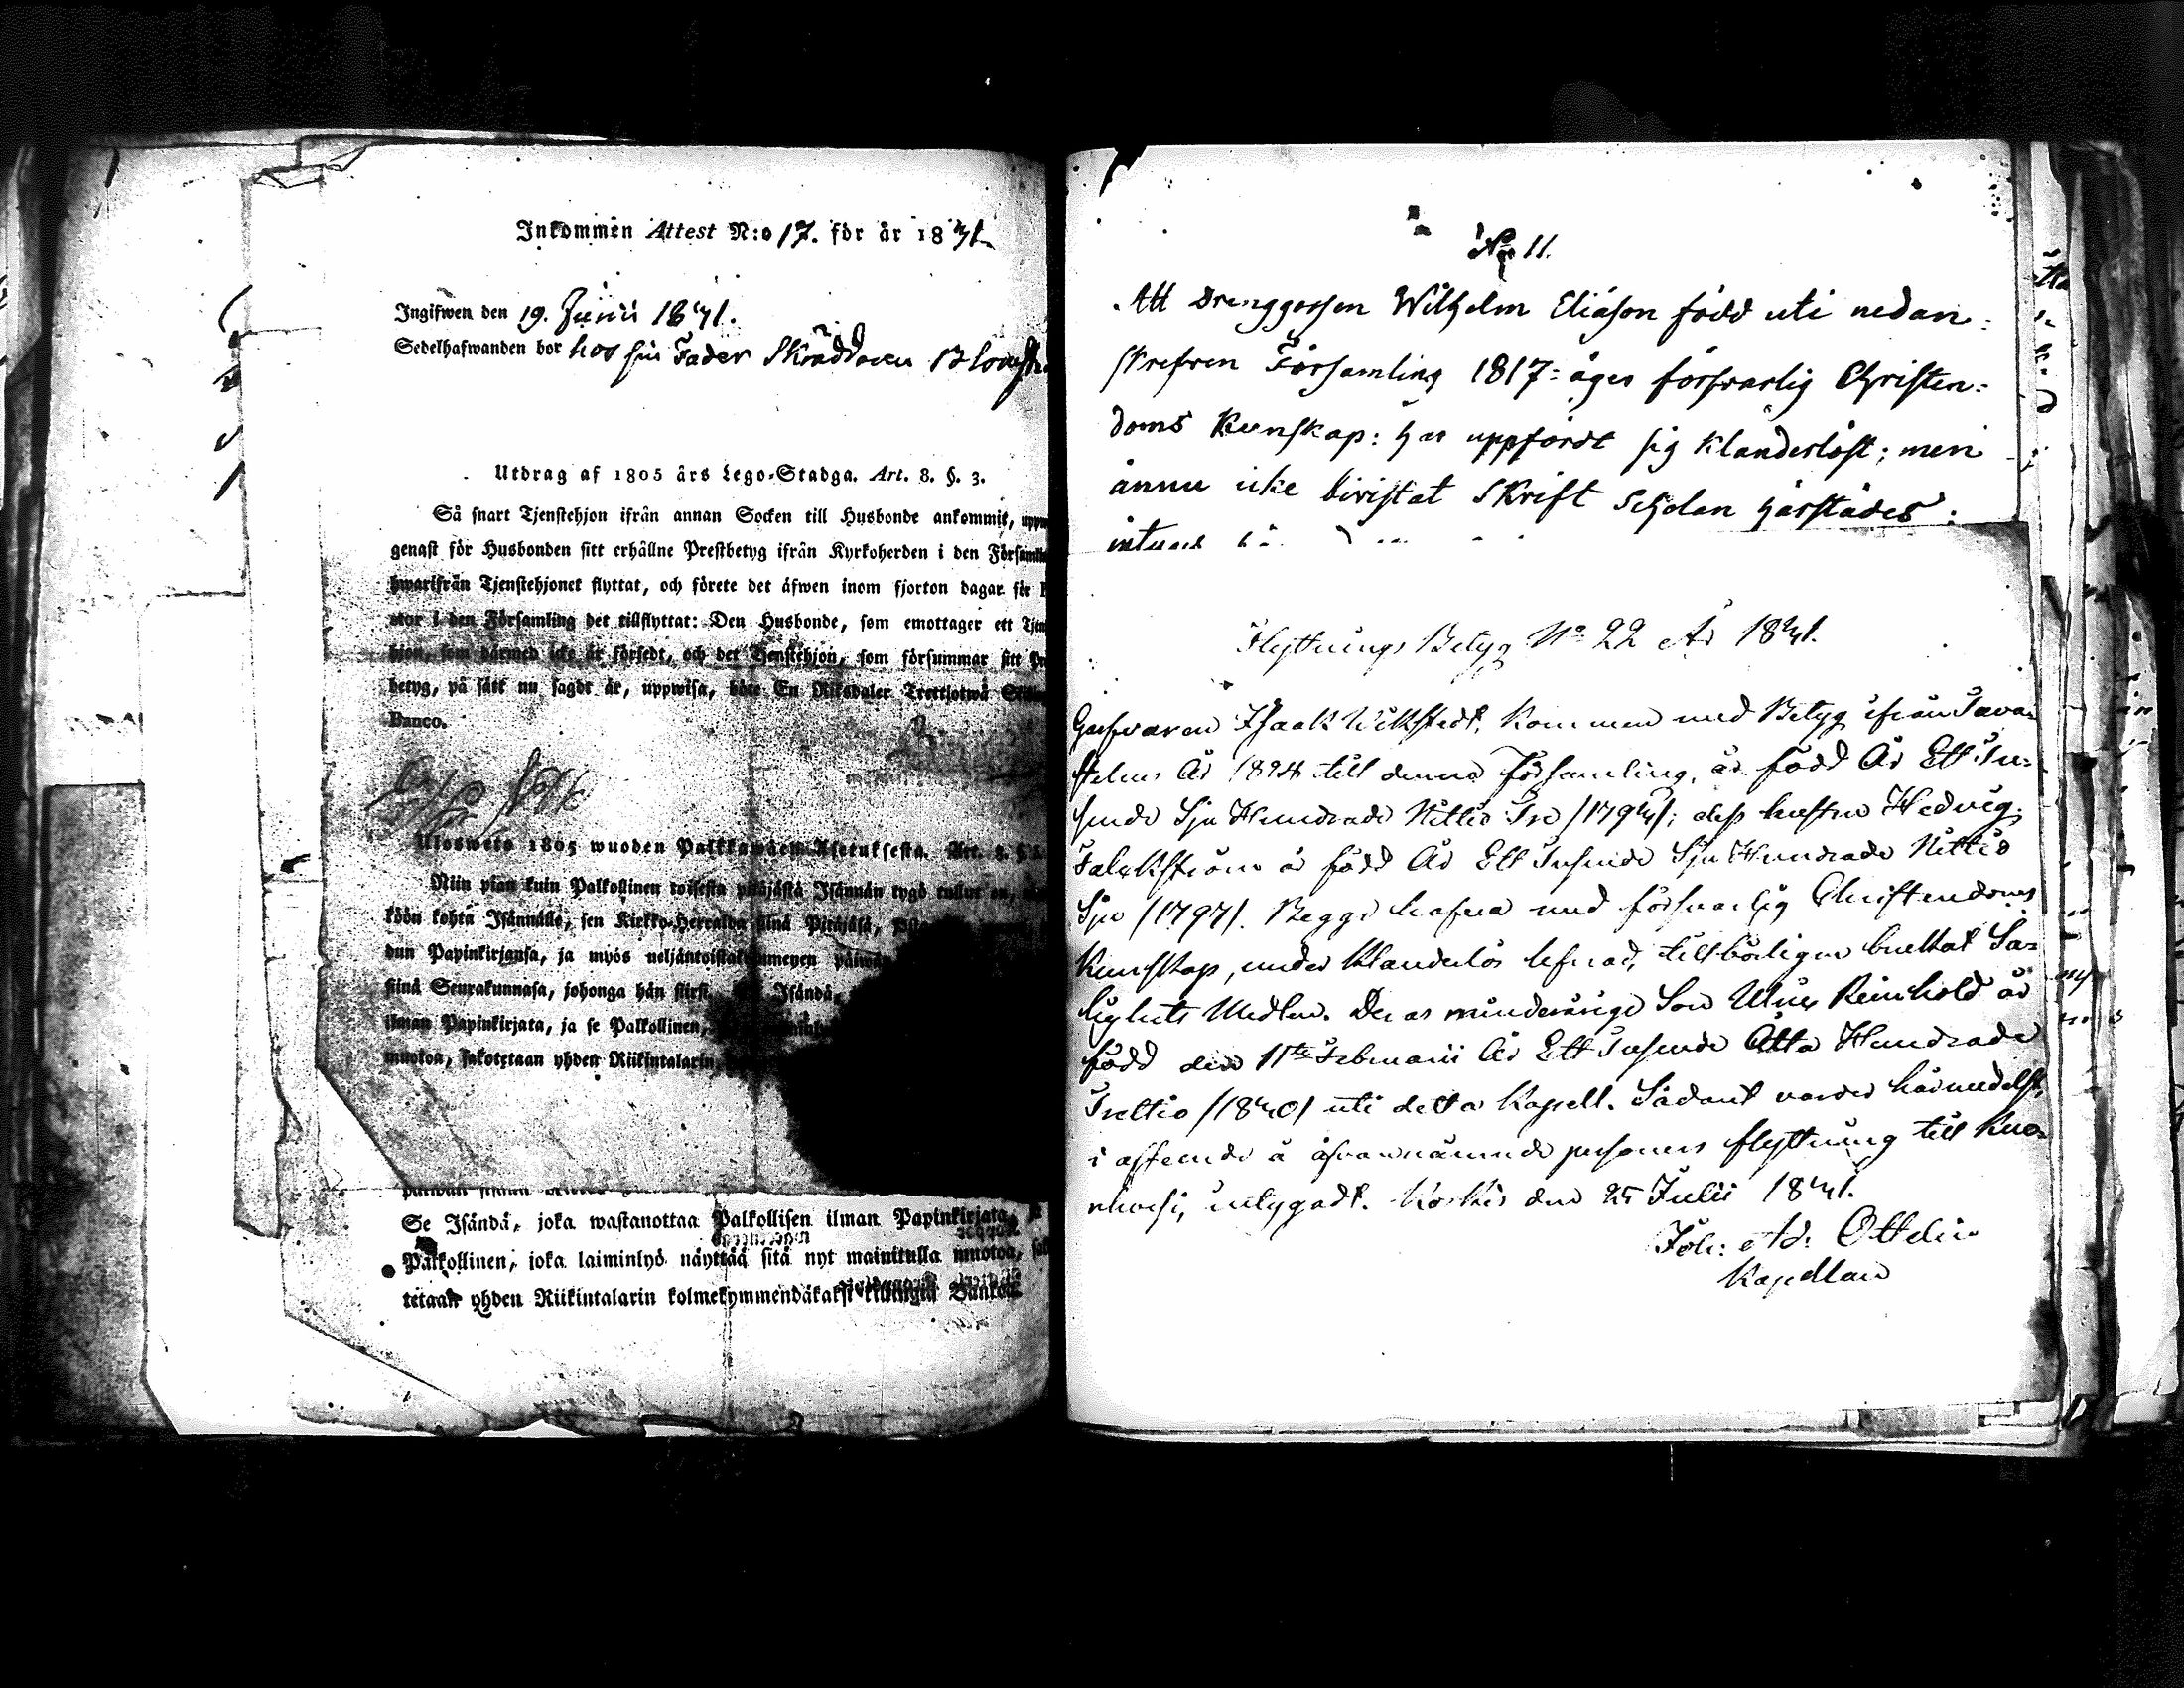 Inkommen Attest N:o 17. för år 1831
Ingifwen den 19. Junii 1831.
Sedelhafwanden bor hos sin Fader Skräddaren
Utdrag af 1805 års Lego-Stadga. Art. 8. §. 3.
Så snart Tjenstehjon ifrån annan Socken till Husbonde ankommit,
genast för Husbonden sitt erhållne Prestbetyg ifrån Kyrkoherden i den
hwarifrån Tjenstehjonet flyttat, och förete det äfwen inom fjorton dagar för
i den Församling det tillflyttat: Den Husbonde, som emottager ett
hjon, som därmed icke är försedt, och det Tjenstehjon, som försummar sitt
betyg, på sätt nu sagdt är, uppwisa, böte En Riksdaler Trettiotwå
Banco.
Ulosweto 1805 wuoden Palkkawäen Asetuksesta. Art. 8.
Niin pian kuin Palkollinen toisesta pitäjästä Isännän tygö tullut on,
köön kohta Isännälle, sen Kirkko-Herralda siinä Pitäjäsä,
dun Papinkirjansa, ja myös neljäntoistakymmenen
siinä Seurakunnasa, johonga hän siirt Isändä,
ilman Papinkirjata, ja se Palkollinen,
muotoa, sakotetaan yhden Riikintalarin
Se Isändä, joka wastanottaa Palkollisen ilman Papinkirjata,
Palkollinen, joka laiminlyö näyttää sitä nyt mainitulla muotoa,
tetaan yhden Riikintalarin kolmekymmendäkaksi killingiä Bankoa.
No 11.
Att Drenggossen Wilhelm Eliason född uti nedan-
skrefven Församling 1817: äger försvarlig Christen-
doms Kunskap: har uppfördt sig klanderlöst; men
ännu icke bivistat Skrift Scholan härstädes:
intygas
Flyttnings Betyg No 22 År 1831.
Garfvaren Isaak Wikstedt, kommen med Betyg ifrån Tava-
stehus År 1824 till denna Församling, är född År Ett Tu-
sende Sju Hundrade Nittio Tre /1793/; dess hustru Hedvig
Falckström är född År Ett Tusende Sju Hundrade Nittio
Sju /1797/. Begge hafva med försvarlig Christendoms
Kunskap, under klanderlös lefnad, tillbörligen brukat Sa-
lighets Medlen. Deras minderårige Son Reinhold är
född den 11te Februarii År Ett Tusende Åtta Hundrade
Trettio /1830/ uti detta Kapell. Sådant varder härmedelst,
i afseende å ofvannämnde personers flyttning till
intygadt. Koskis den 25 Julii 1831.
Joh: Ad: Ottelin
Kapellan